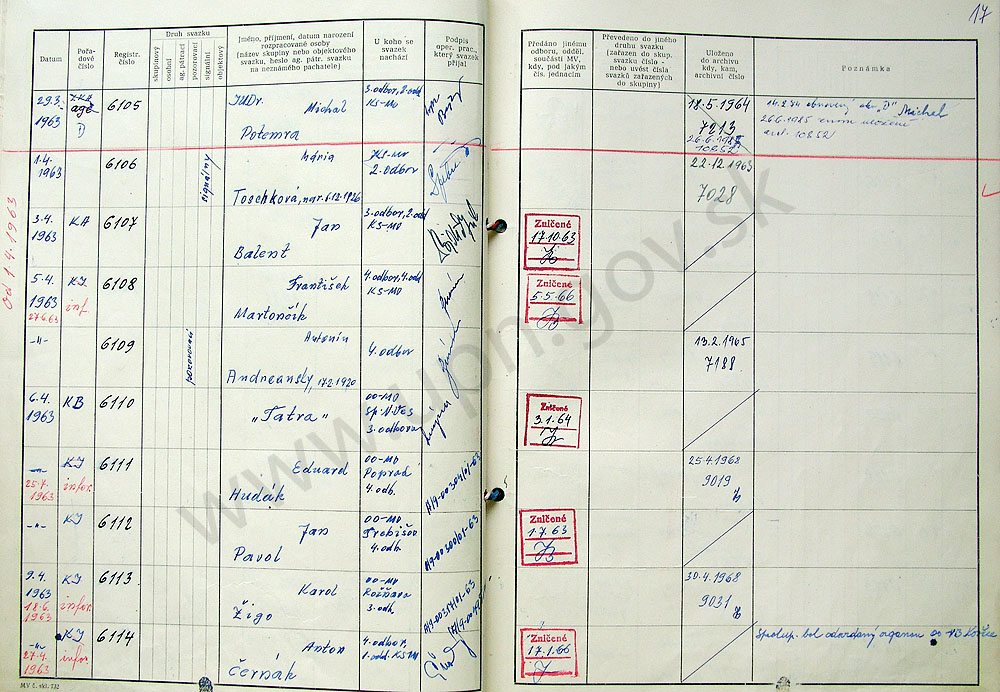 17
Datum
Pořadové číslo
Registr. číslo
Druh svazku
skupinový
osobní
ag. pátrací
pozorovací
signální
objektový
Jméno, příjmení, datum narození
rozpracované osoby
(název skupiny nebo objektového
svazku, heslo ag. pátr. svazku
na neznámého pachatele)
U koho se
svazek
nachází
Podpis
oper. prac.,
který svazek
přijal
Předáno jinému
odboru, odděl.
součásti MV,
kdy, pod jakým
čís. jednacím
Převedeno do jiného
druhu svazku
(zařazen do skup.
svazku číslo -
nebo uvést čísla
svazků zařazených
do skupiny)
Uloženo
do archivu
kdy, kam,
archivní číslo
Poznámka
29.3.
1963
age
D
6105
JUDr.
Michal
Potemra
3.odbor, 2.odd
KS-MO
18.5.1964
7213
26.6.1985
10852
Michal
od 1.4.1963
1.4.
1963
6106
signálny
Mária
Toschková, nar. 6.12.1926
KS-MV
2.odbor
22.12.1963
7028
3.4.
1963
KA
6107
Jan
Balent
3.odbor, 2.odd
KS-MO
Zničené
17.10.63
5.4.
1963
27.6.63
KI
inf.
6108
František
Martončik
4.odbor, 4.odd
KS-MO
Zničené
5.5.66
-"-
6109
pozorovací
Antonín
Andreansky, 17.2.1920
4.odbor
13.2.1965
7188.
6.4.
1963
KB
6110
"Tatra"
OO-MO
Sp.N.Ves
3.odbora
Zničené
3.1.64
-"-
25.7.
1963
KI
infor.
6111
Eduard
Hudák
OO-MO
Poprad
4.odb.
A/9-00304/01-63
25.4.1968
9019
-"-
KI
6112
Jan
Pavol
OO-MO
Trebišov
4.odb.
A9-00300/01-63
Zničené
1.7.63
9.4.
1963
18.6.
1963
KI
infor.
6113
Karol
Žigo
OO-MO
Rožňava
3.odb.
A/9-00317/01-63
30.4.1968
9031
-"-
27.4.
1963
KI
infor.
6114
Anton
Černák
4.odbor,
1.odd. KS MV
Zničené
17.1.66
Spolup. bol odovzdaný agenom OO VB Košice
MV č. skl. 732
www.upn.gov.sk